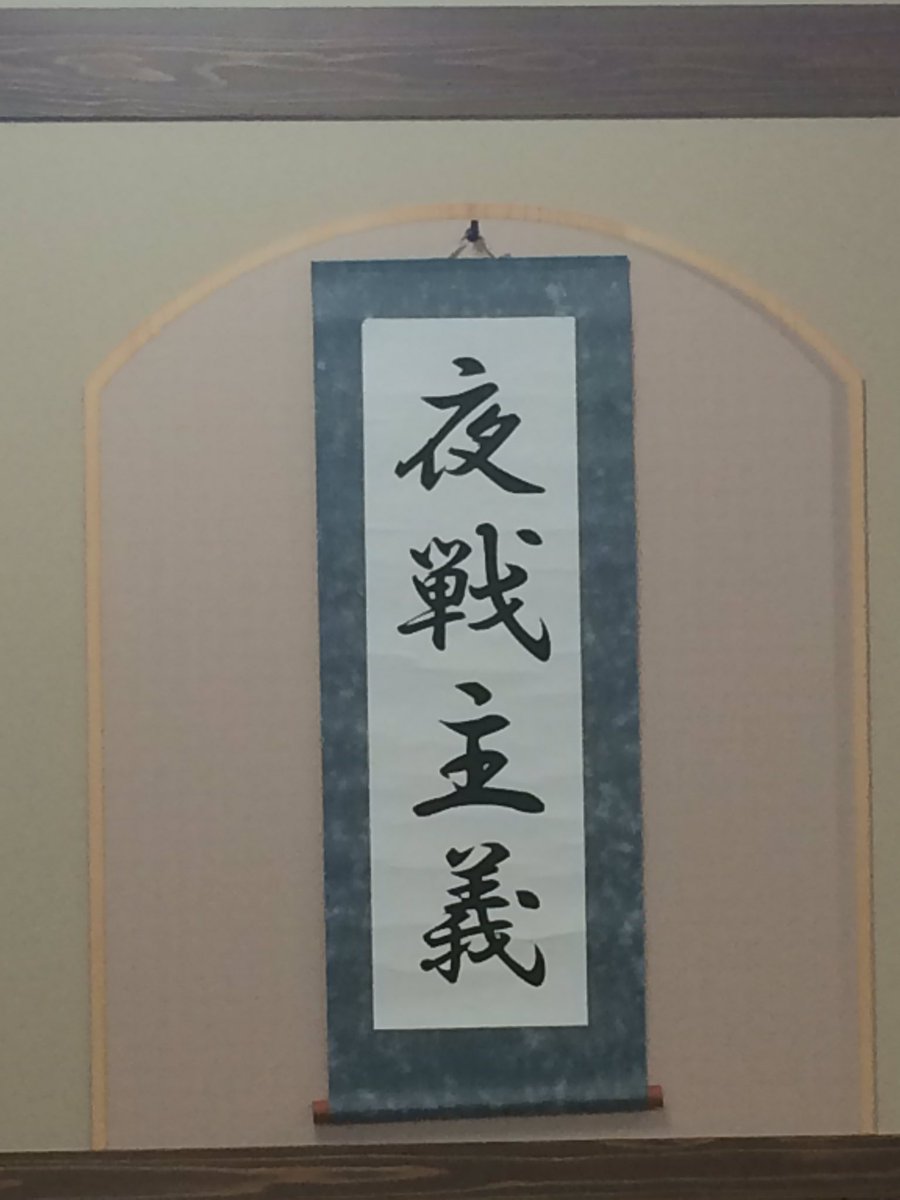 夜戦主義